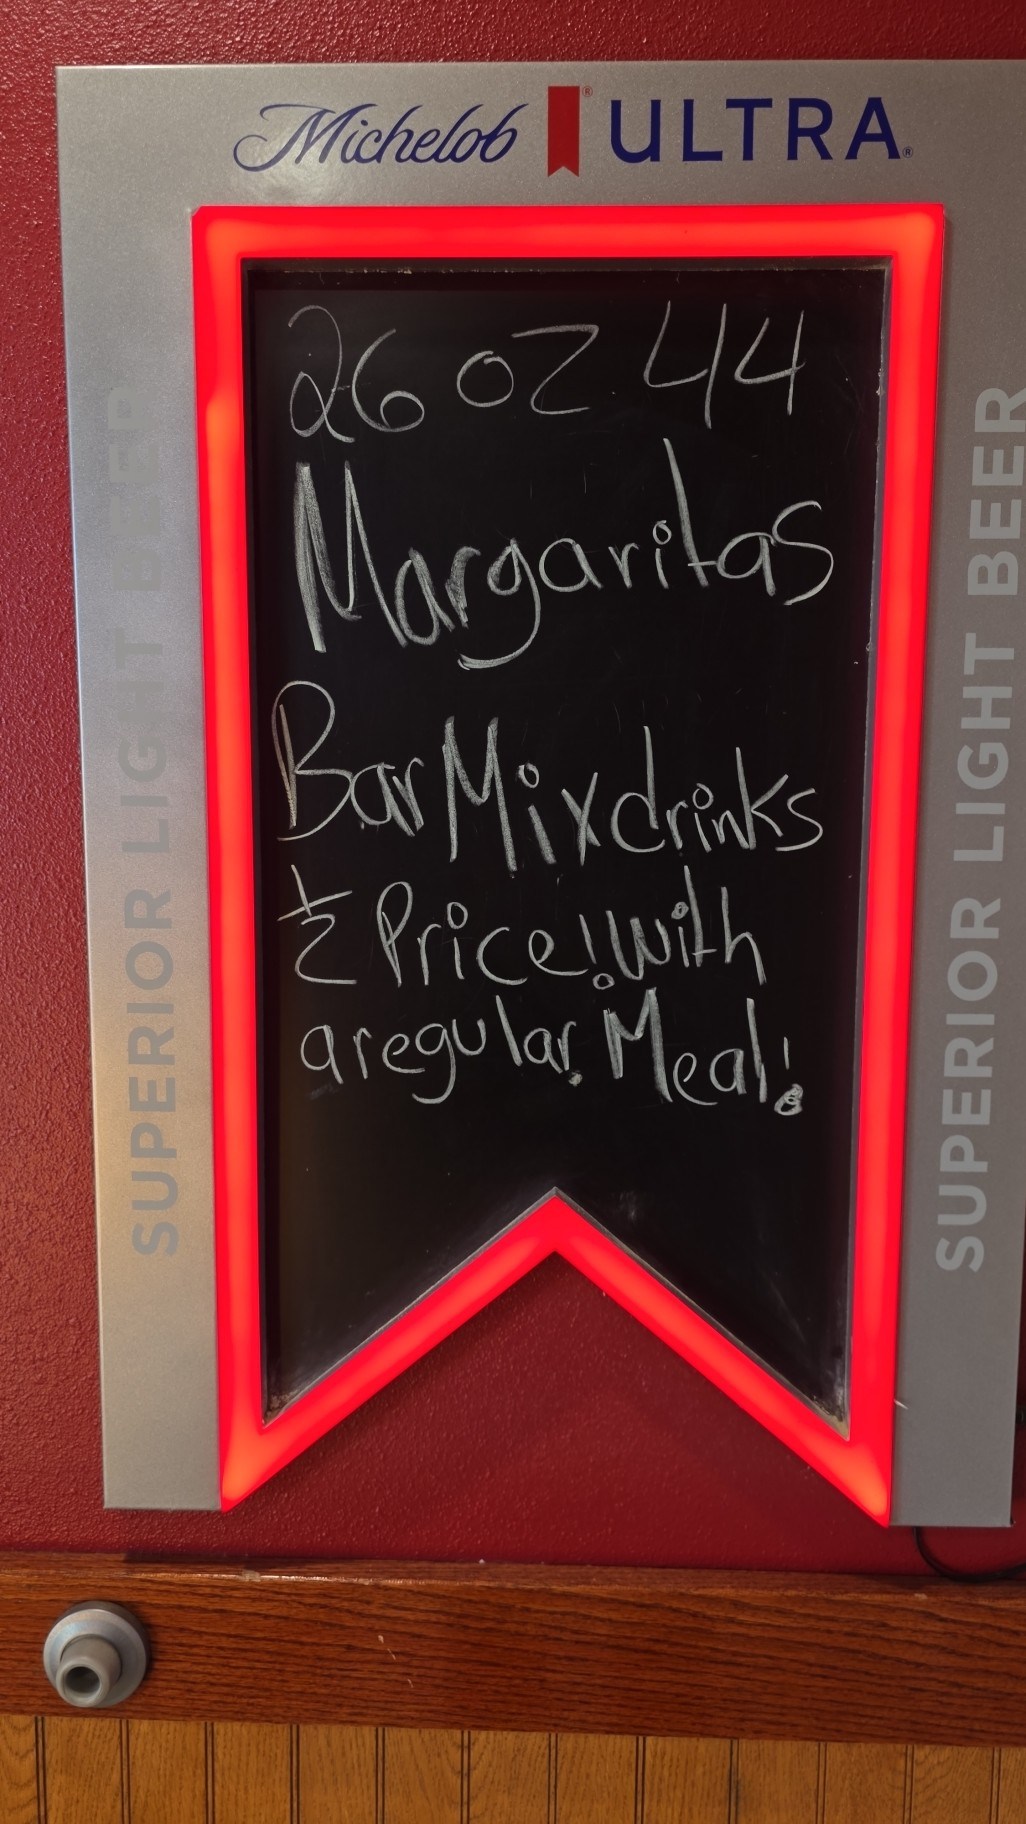 Michelob ULTRA
26 oz 44
Margaritas
Bar Mix drinks
1/2 Price! With
a regular Meal!
SUPERIOR LIGHT BEER
SUPERIOR LIGHT BEER